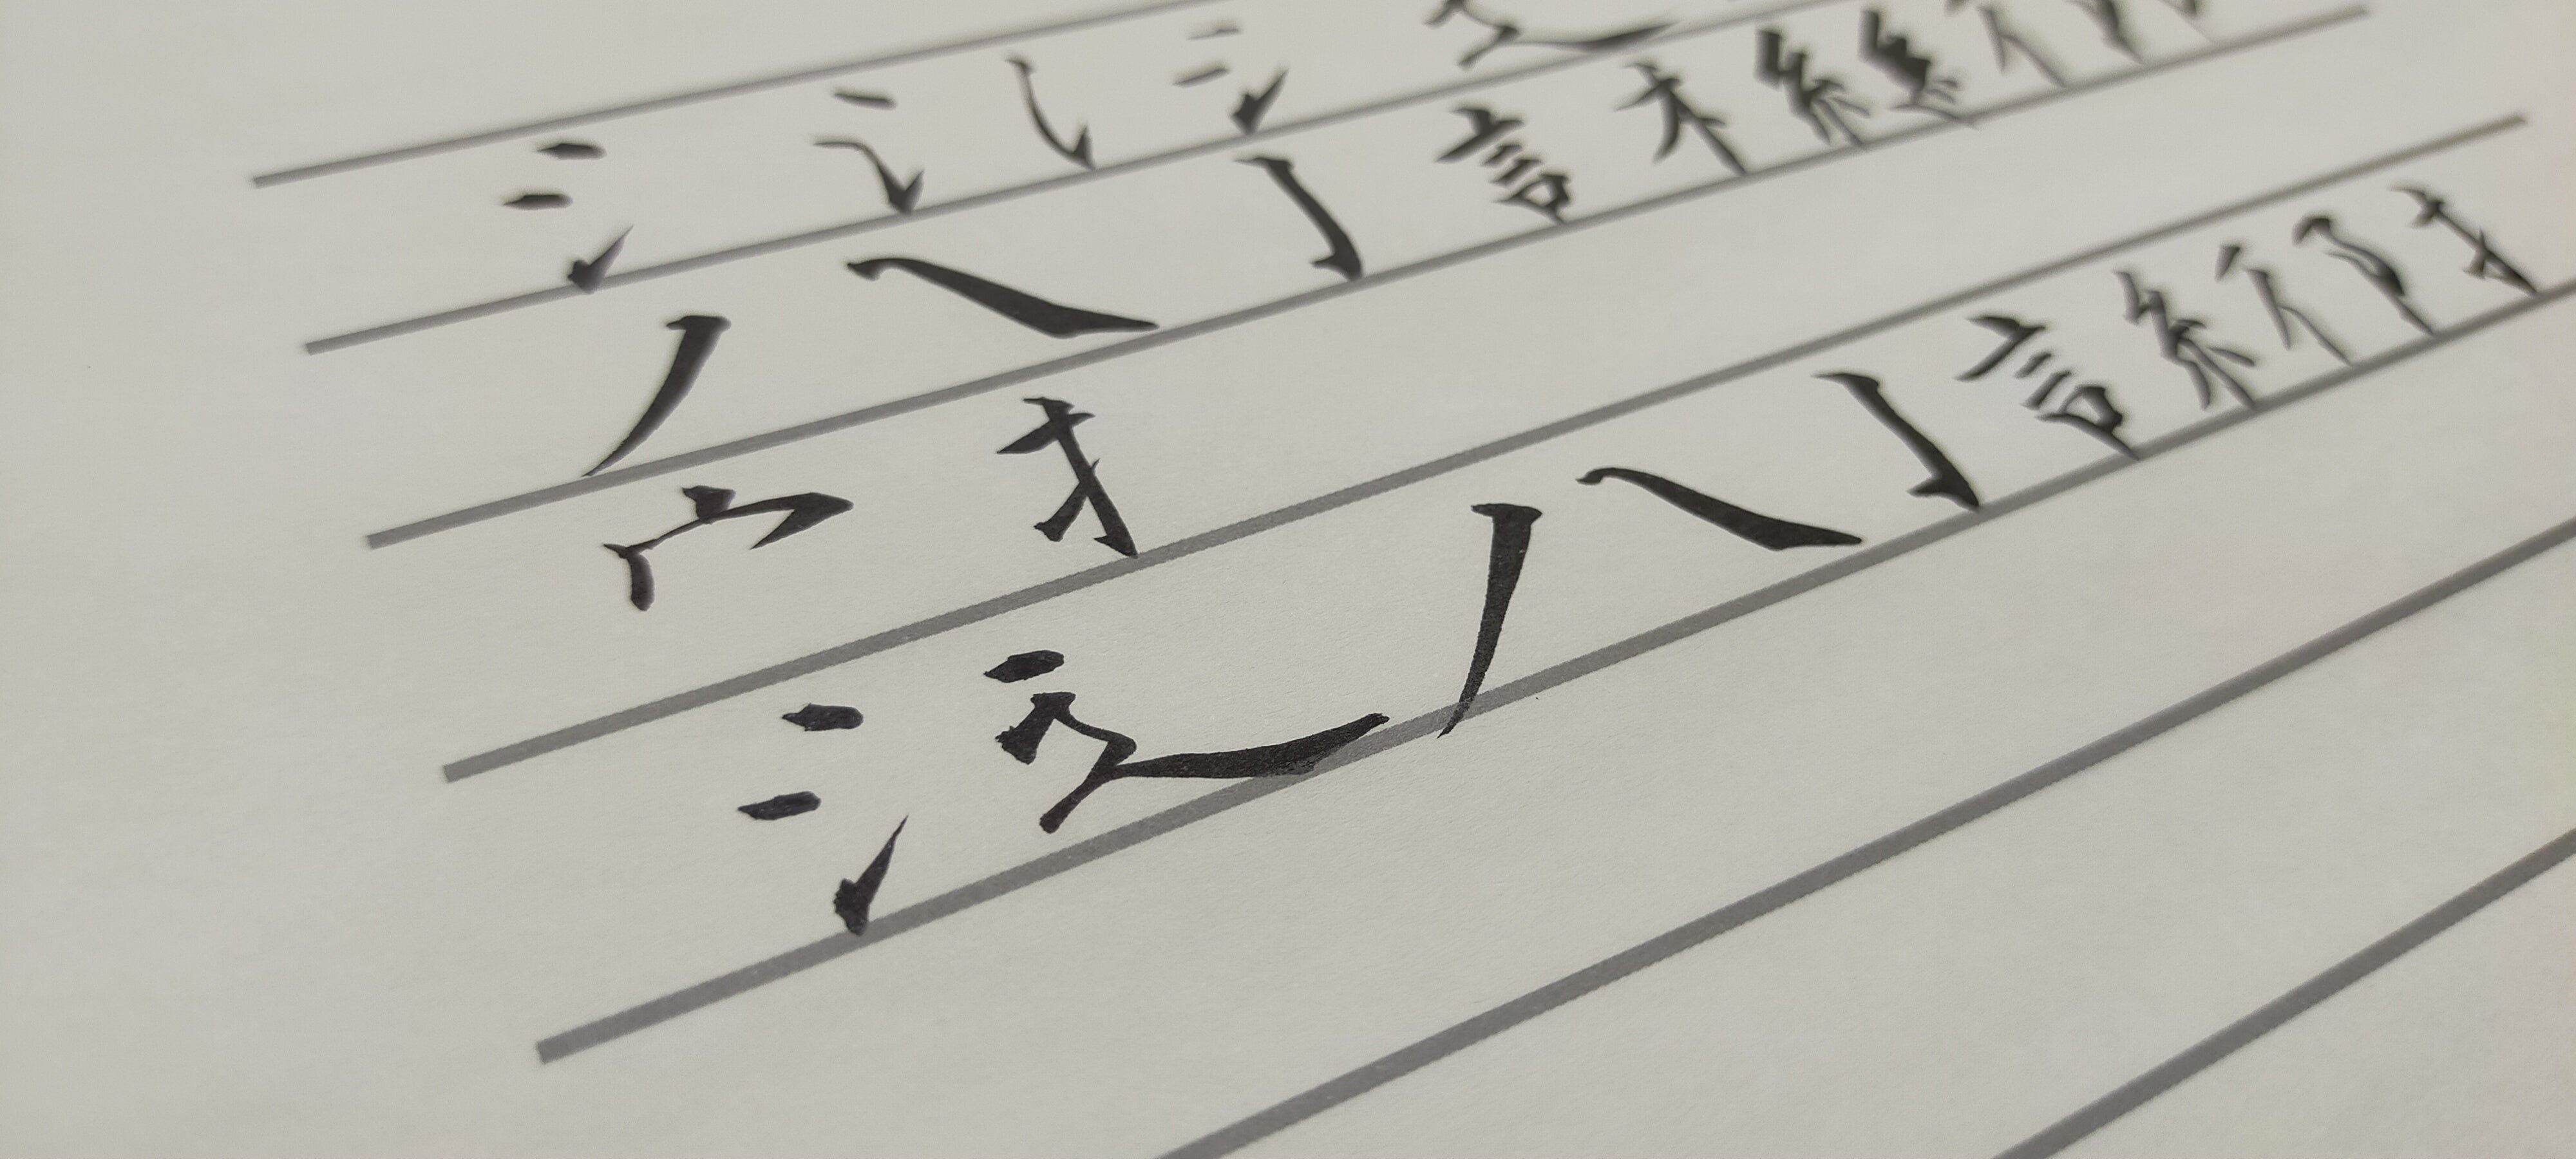 氵 讠 乚 氵 辶
丿 ㇏ 亅 言 木 糹 糸 亻
宀 扌
氵 辶 丿 ㇏ 亅 言 糹 亻 阝 扌